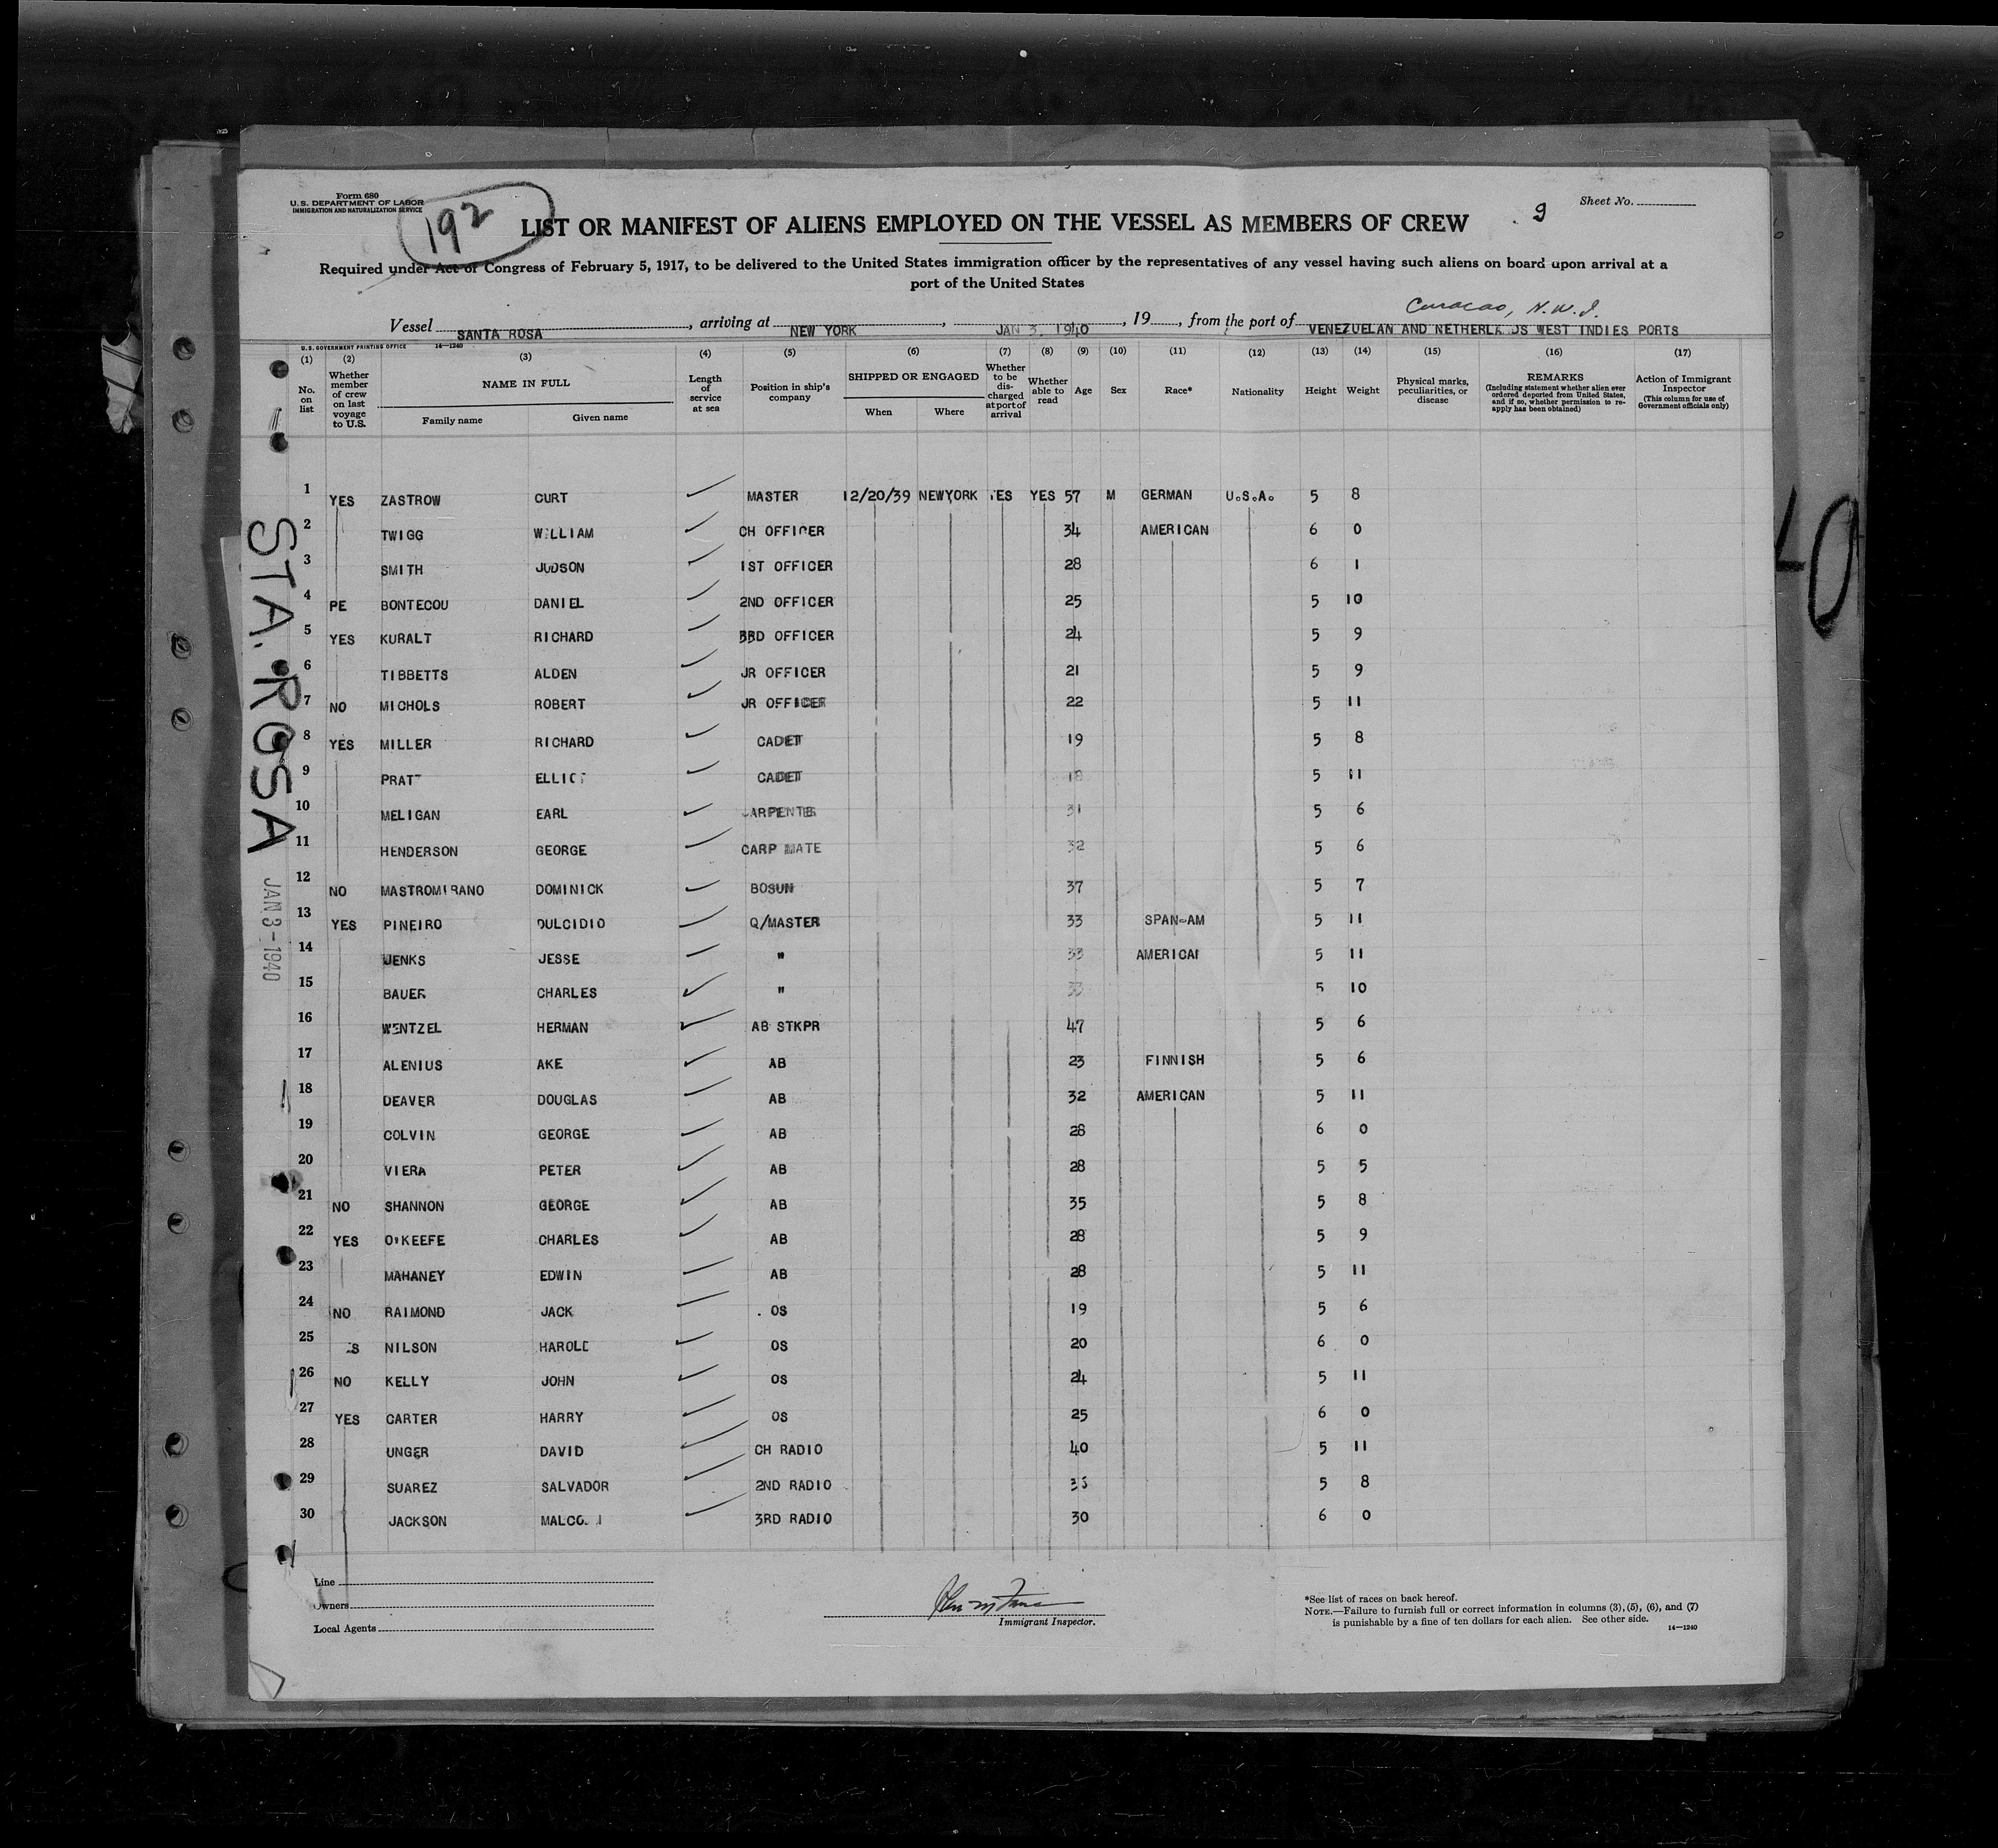 Form 680
U. S. DEPARTMENT OF LABOR
IMMIGRATION AND NATURALIZATION SERVICE
192
Sheet No.
9
LIST OR MANIFEST OF ALIENS EMPLOYED ON THE VESSEL AS MEMBERS OF CREW
Required under Act of Congress of February 5, 1917, to be delivered to the United States immigration officer by the representatives of any vessel having such aliens on board upon arrival at a
port of the United States
Curacao, N.W.I.
Vessel SANTA ROSA, arriving at NEW YORK, JAN 3, 1940, 19, from the port of VENEZUELAN AND NETHERLANDS WEST INDIES PORTS
U. S. GOVERNMENT PRINTING OFFICE 14—1240
(1) (2) (3) (4) (5) (6) (7) (8) (9) (10) (11) (12) (13) (14) (15) (16) (17)
No. on list
Whether member of crew on last voyage to U.S.
NAME IN FULL
Family name Given name
Length of service at sea
Position in ship's company
SHIPPED OR ENGAGED
When Where
Whether to be discharged at port of arrival
Whether able to read
Age
Sex
Race*
Nationality
Height
Weight
Physical marks, peculiarities, or disease
REMARKS
(Including statement whether alien ever ordered deported from United States, and if so, whether permission to reapply has been obtained)
Action of Immigrant Inspector
(This column for use of Government officials only)
1 YES ZASTROW CURT MASTER 12/20/39 NEWYORK YES YES 57 M GERMAN U.S.A. 5 8
2 TWIGG WILLIAM CH OFFICER 34 AMERICAN 6 0
3 SMITH JUDSON 1ST OFFICER 28 6 1
4 PE BONTECOU DANIEL 2ND OFFICER 25 5 10
5 YES KURALT RICHARD 3RD OFFICER 24 5 9
6 TIBBETTS ALDEN JR OFFICER 21 5 9
7 NO MICHOLS ROBERT JR OFFICER 22 5 11
8 YES MILLER RICHARD CADET 19 5 8
9 PRATT ELLIOT CADET 18 5 11
10 MELIGAN EARL 31 5 6
11 HENDERSON GEORGE CARP MATE 32 5 6
12 NO DOMINICK BOSUN 37 5 7
13 YES PINEIRO DULCIDIO Q/MASTER 33 SPAN-AM 5 11
14 JENKS JESSE " 33 AMERICAN 5 11
15 BAUER CHARLES " 33 5 10
16 WENTZEL HERMAN AB STKPR 47 5 6
17 ALENIUS AKE AB 23 FINNISH 5 6
18 DEAVER DOUGLAS AB 32 AMERICAN 5 11
19 COLVIN GEORGE AB 28 6 0
20 VIERA PETER AB 28 5 5
21 NO SHANNON GEORGE AB 35 5 8
22 YES O'KEEFE CHARLES AB 28 5 9
23 MAHANEY EDWIN AB 28 5 11
24 NO RAIMOND JACK OS 19 5 6
25 NILSON HAROLD OS 20 6 0
26 NO KELLY JOHN OS 24 5 11
27 YES CARTER HARRY OS 25 6 0
28 UNGER DAVID CH RADIO 40 5 11
29 SUAREZ SALVADOR 2ND RADIO 5 8
30 JACKSON 3RD RADIO 30 6 0
STA. ROSA
JAN 3 - 1940
Line
Owners
Local Agents
Immigrant Inspector.
*See list of races on back hereof.
NOTE.—Failure to furnish full or correct information in columns (3), (5), (6), and (7)
is punishable by a fine of ten dollars for each alien. See other side.
14—1240